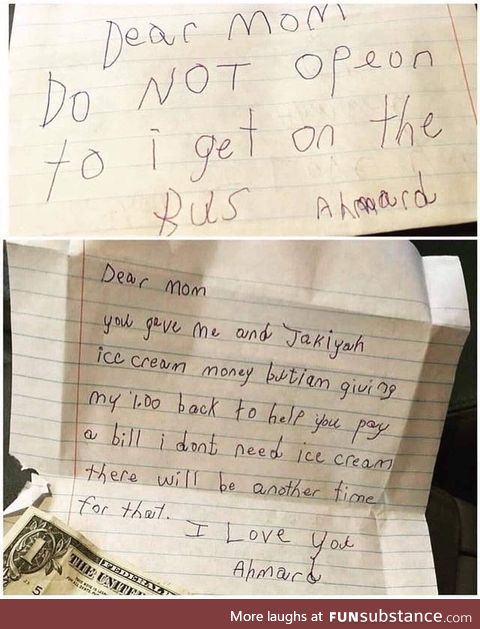 Dear Mom
Do NOT opeon
to i get on the
BUS Ahmard
Dear Mom
you gave me and Jakiyah
ice cream money but iam giving
my 1.00 back to help you pay
a bill i dont need ice cream
there will be another time
for that.
I Love you
Ahmard
FEDERAL
THE UNITE
More laughs at FUNsubstance.com